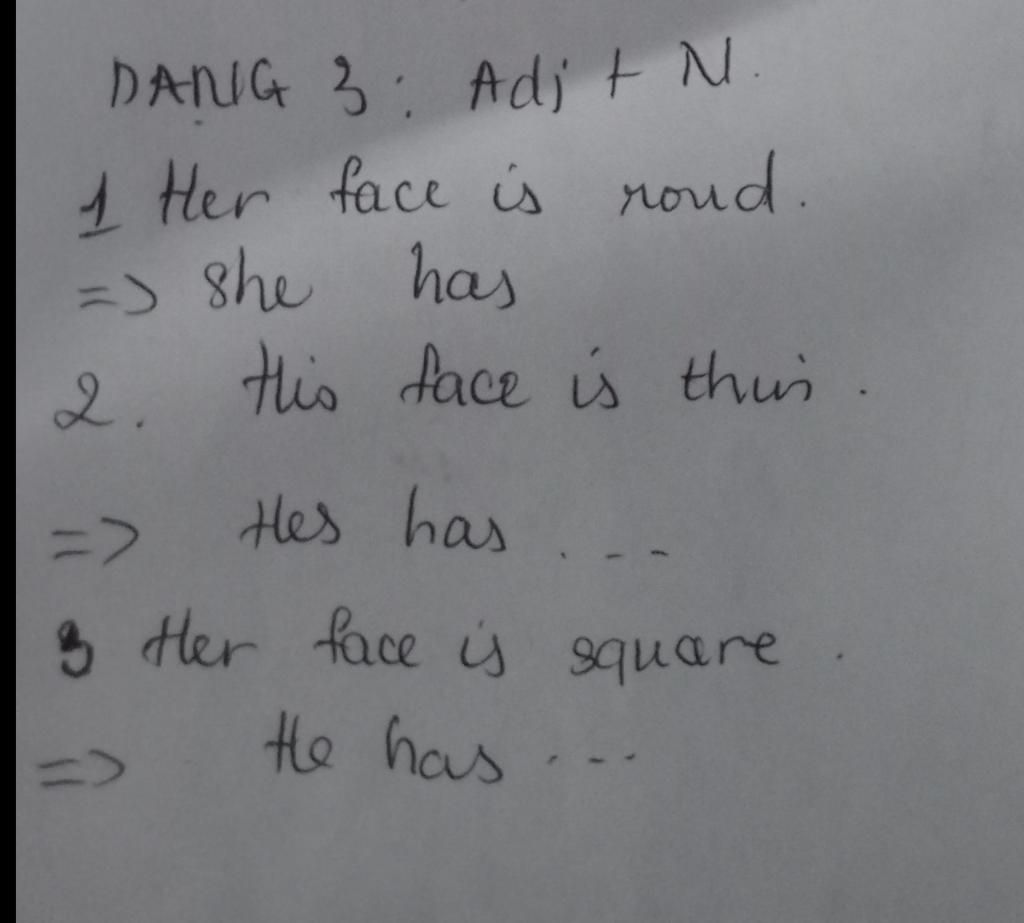 DẠNG 3: Adj + N.
1 Her face is roud.
=> She has
2. His face is thin.
=> Hes has ...
3 Her face is square.
=> He has ...